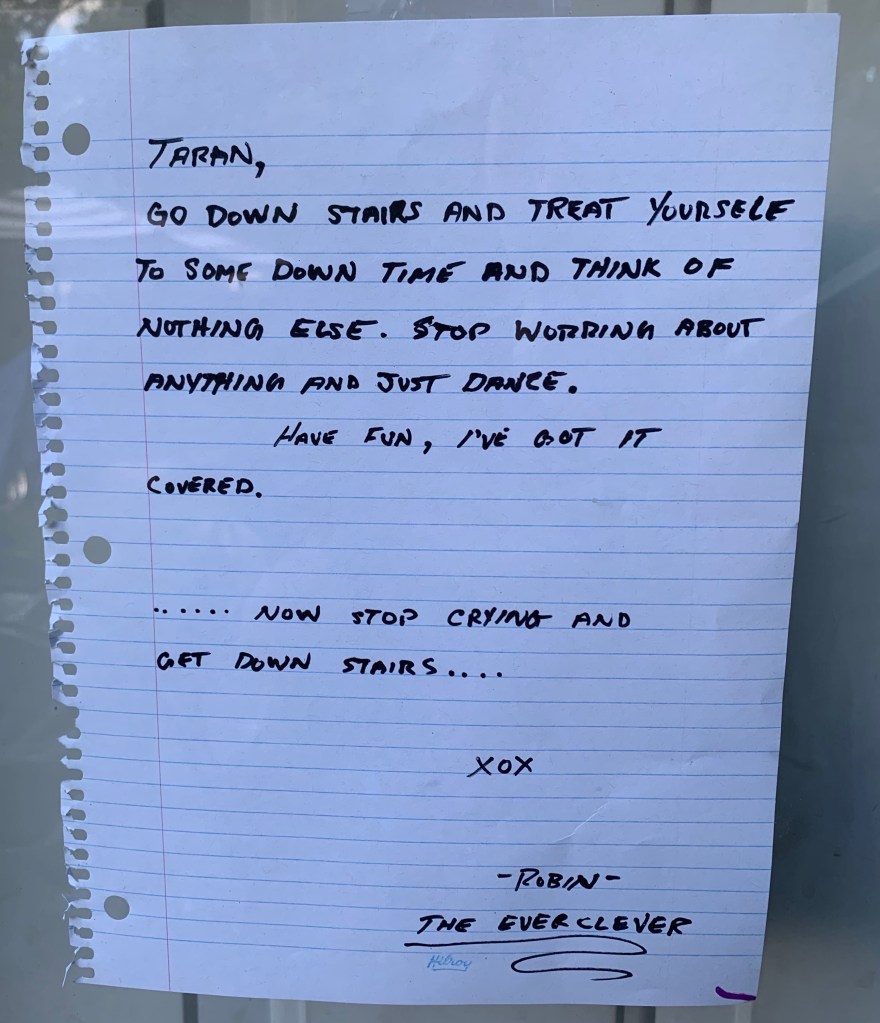 TARAN,
GO DOWN STAIRS AND TREAT YOURSELF
TO SOME DOWN TIME AND THINK OF
NOTHING ELSE. STOP WORRING ABOUT
ANYTHING AND JUST DANCE.
HAVE FUN, I'VE GOT IT
COVERED.
...... NOW STOP CRYING AND
GET DOWN STAIRS....
XOX
-ROBIN-
THE EVERCLEVER
Hilroy